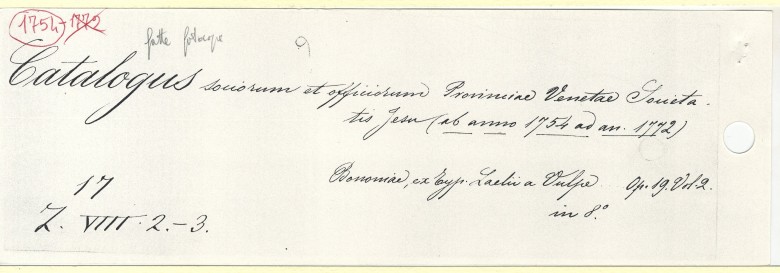 1754-1772
fatte fotocopie
Catalogus sociorum et officiorum Provinciae Venetae Societa-
tis Jesu (ab anno 1754 ad an. 1772)
Bononiae, ex Typ. Laelii a Vulpe. Op. 19. Vol. 2.
in 8.°
17
Z. VIIII. 2.-3.